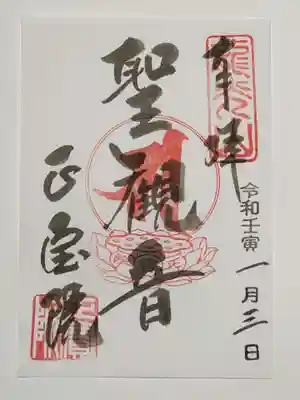 奉拝
令和壬寅
一月三日
聖観音
正宝院